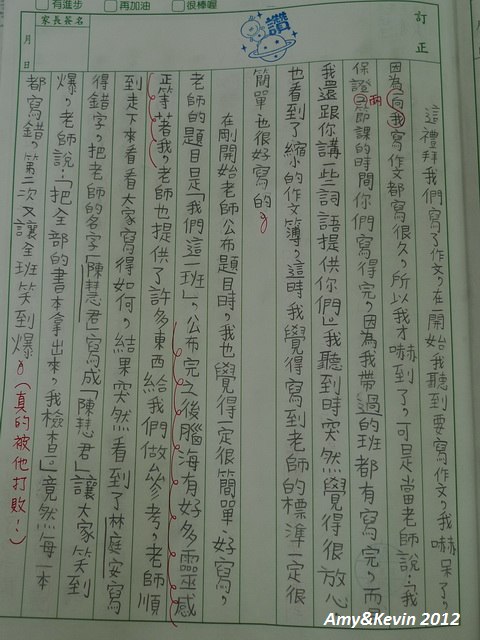 有進步
再加油
很棒喔
訂正
家長簽名
月
日
讚
這禮拜我們寫了作文，在開始我聽到要寫作文，我嚇呆了，
因為一向我寫作文都寫很久，所以我才嚇到了，可是當老師說：「我
保證兩節課的時間你們寫得完，因為我帶過的班都有寫完，而
我還跟你講一些詞語提供你們。」我聽到時突然覺得很放心
也看到了縮小的作文簿，這時我覺得寫到老師的標準一定很
簡單也很好寫的。
在剛開始老師公布題目時，我也覺得一定很簡單、好寫，
老師的題目是「我們這一班」，公布完之後腦海有好多靈感
正等著我，老師也提供了許多東西給我們做參考，老師順
到走下來看看大家寫得如何，結果突然看到了林庭安寫
得錯字，把老師的名字「陳慧君」寫成「陳慧君」讓大家笑到
爆，老師說：「把全部的書本拿出來，我檢查。」竟然每一本
都寫錯，第二次又讓全班笑到爆。(真的被他打敗!)
Amy&Kevin 2012